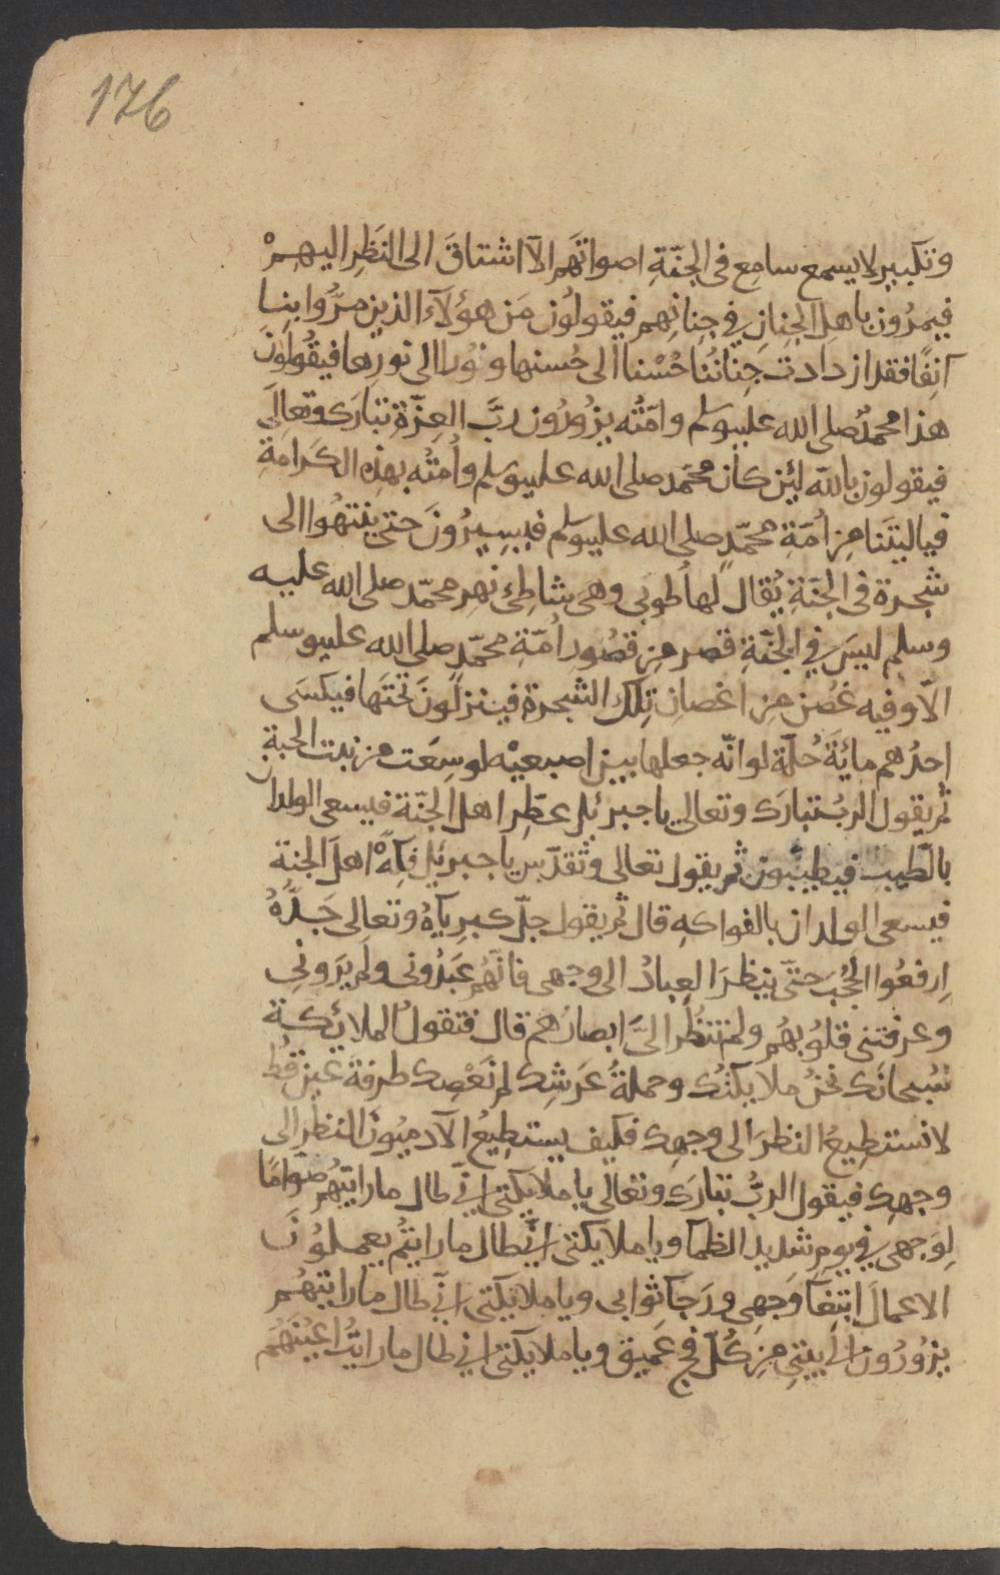 176
وتكبير لا يسمع سامع فى الجنّةِ اصواتَهم الاّ اشتاقَ الى النَظَرِ اليهِمْ
فيمرُون باهلِ الجِنانِ في جِنانِهم فيقولُون مَن هؤلآء الذين مرُّوا بنا
آنِفًا فقد ازدادت جِنانُنا حُسْنا الى حُسنها ونُورا الى نورِها فيقُولونَ
هذا محمدٌ صلى الله عليه وسلم وامّتُه يزُورُون ربَّ العِزّةِ تبارَك وتعالَى
فيقولون بالله لئِن كان محمّد صلى الله عليه وسلم وأُمتُه بهذه الكَرامَةِ
فياليتَنا مِن اُمّةِ محمّدٍ صلى الله عليه وسلم فيسِيرُونَ حتى ينتهُوا الى
شجرة فى الجَنّةِ يُقال لها طُوبَى وهى بشاطِئ نهرِ محمّد صلى الله عليه
وسلم ليسَ في الجَنّةِ قصر مِن قصُور اُمّةِ محمّدٍ صلى الله عليه وسلم
الاّ وفيه غُصْن مِن اغصانِ تِلك الشجرة فينزلُونَ تحتَها فيكسَى
احدُهم مائةَ حُلّة لو انّه جعلها بين اصبعيْه لوسِعَت من نبت الحبة
ثم يقول الربُّ تبارَك وتعالى يا جبرئِل عطِّر اهل الجنّة فيسعى الولدان
بالطِّيبِ فيطيِّبون ثم يقول تعالى وتقدّس يا جبرئِل فَكِّهْ اهلَ الجنة
فيسعى الولدان بالفواكهِ قال ثم يقول جلّ كبرِيآؤهُ وتعالى جَدُّهُ
اِرفعُوا الحُجُبَ حتّى ينظرَ العِبادُ الى وجهى فانّهُم عَبَدُونى ولم يَرَونِي
وعرفتنى قلُوبهُم ولم تنظُر الىَّ ابصارُهم قال فتقولُ الملائكة
سُبحانَك نحنُ ملائكتُك وحملةُ عَرشِك لم نَعْصِك طرفةَ عَين قطُّ
لا نستطِيعُ النظرَ الى وجهِك فكيف يستطِيعُ الآدميُونَ النظرَ الى
وجهِك فيقول الربُّ تبارَك وتعالى يا ملائِكتى اِنّي طال ما رايتُهم صُوّامًا
لِوَجهى في يومٍ شديد الظما ويا ملائكتى اِنّي طال ما رايتُهم يعملُونَ
الاعمالَ ابتِغآ وَجهِى ورَجآ ثوابى ويا ملائكتى اِنّي طال ما رايتهُم
يزُورُون الى بيتي مِن كُلّ فج عَميق ويا ملائكتى اني طال ما رايتُ اعيُنَهُم